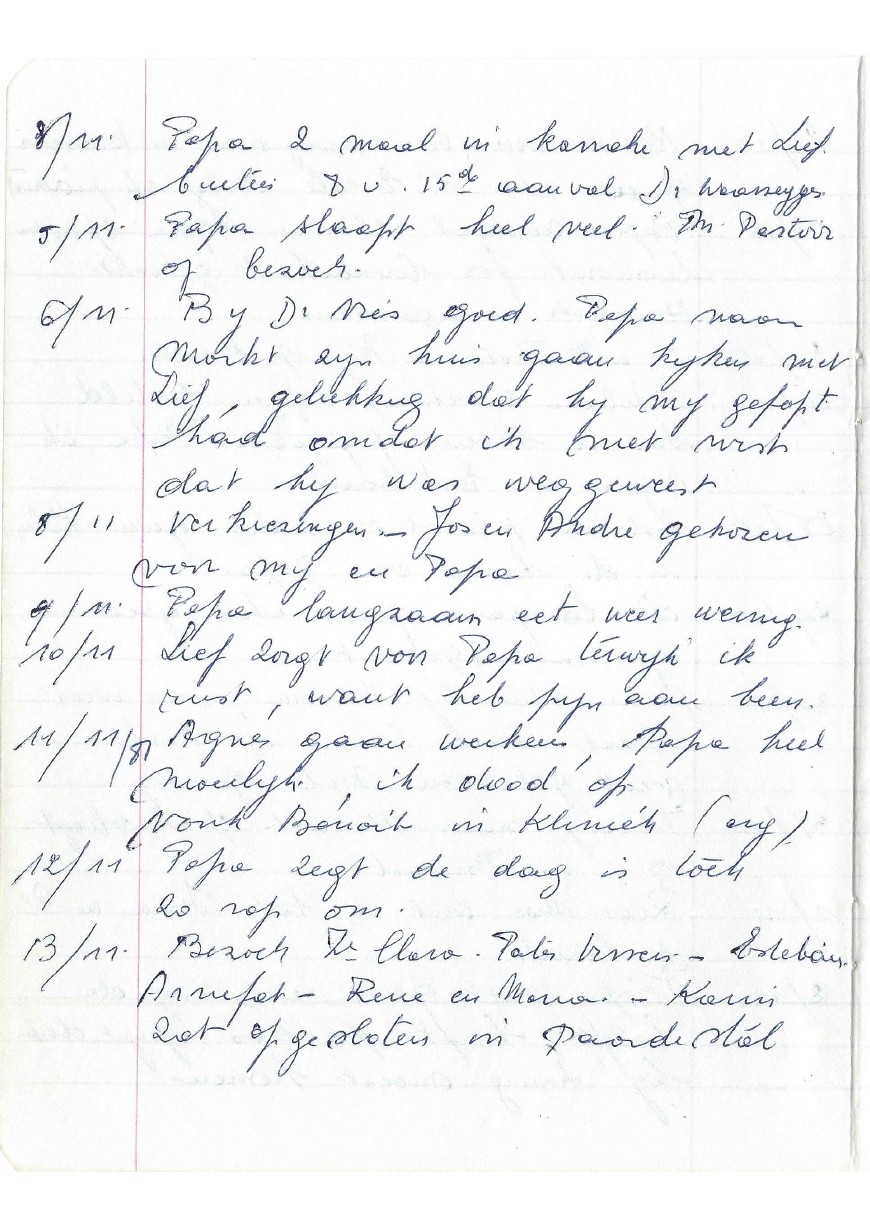 3/11. Papa 2 maal in kamake met Lief.
buiten 8 u. 15 de aanval Dr Waarsegger
5/11. Papa slaapt heel veel. Mr. Pastoor
op bezoek.
6/11. By Dr Kiés goed. Papa naar
Markt zyn huis gaan kyken met
Lief, gelukkig dat hy my gefopt
had omdat ik niet wist
dat hy was weggeweest
8/11 Verkiezingen. - Jos en Andre gekozen
voor my en Papa
9/11. Papa langzaam eet weer weinig.
10/11 Lief zorgt voor Papa terwyl ik
rust, want heb pyn aan been.
11/11/81 Agnes gaan werken, Papa heel
moeilyk, ik dood op
vork Bénoit in Kliniek (erg)
12/11 Papa zegt de dag is toch
zo rap om.
13/11. Bezoek Zr Clara. Pater Vissers. - Esteban.
Arnefat - René en Maria. - Karin
zat opgesloten in Paardestal